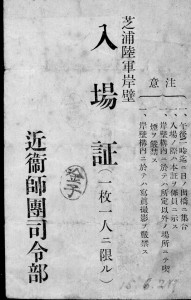 芝浦陸軍岸壁
入場証
(一枚一人ニ限ル)
近衛師團司令部
注意
一、午後一時迄ニ日ノ出橋ニ集合
一、入場ノ際ハ本証ヲ係員ニ示ス
一、岸壁構内ニ於テハ所定以外ノ場所ニテ喫煙ヲ嚴禁ス
一、岸壁構内ニ於テハ寫眞撮影ヲ嚴禁ス